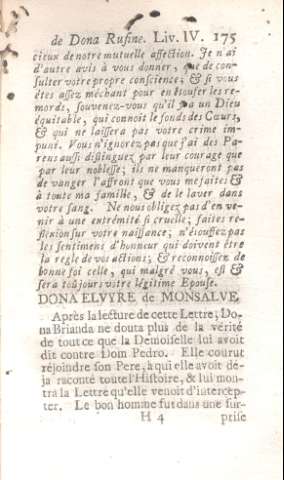 de Dona Rufine. Liv. IV. 175
cieux de notre mutuelle affection. Je n'ai
d'autre avis à vous donner, que de con-
sulter votre propre conscience; & si vous
êtes assez méchant pour en étouffer les re-
mords, souvenez-vous qu'il y a un Dieu
équitable, qui connoit le fonds des Cœurs,
& qui ne laissera pas votre crime im-
puné. Vous n'ignorez pas que j'ai des Pa-
rens aussi distinguez par leur courage que
par leur noblesse; ils ne manqueront pas
de vanger l'affront que vous me faites &
à toute ma famille, & de le laver dans
votre sang. Ne nous obligez pas d'en ve-
nir à une extrémité si cruelle; faites re-
flexion sur votre naissance; n'étouffez pas
les sentimens d'honneur qui doivent être
la regle de vos actions; & reconnoissez de
bonne foi celle, qui malgré vous, est &
sera toûjours votre légitime Epouse.
DONA ELVYRE de MONSALVE.
Après la lecture de cette Lettre; Do-
na Brianda ne douta plus de la vérité
de tout ce que la Demoiselle lui avoit
dit contre Dom Pedro. Elle courut
réjoindre son Pere, à qui elle avoit dé-
ja raconté toute l'Histoire, & lui mon-
tra la Lettre qu'elle venoit d'intercep-
ter. Le bon homme fut dans une sur-
H 4 prise